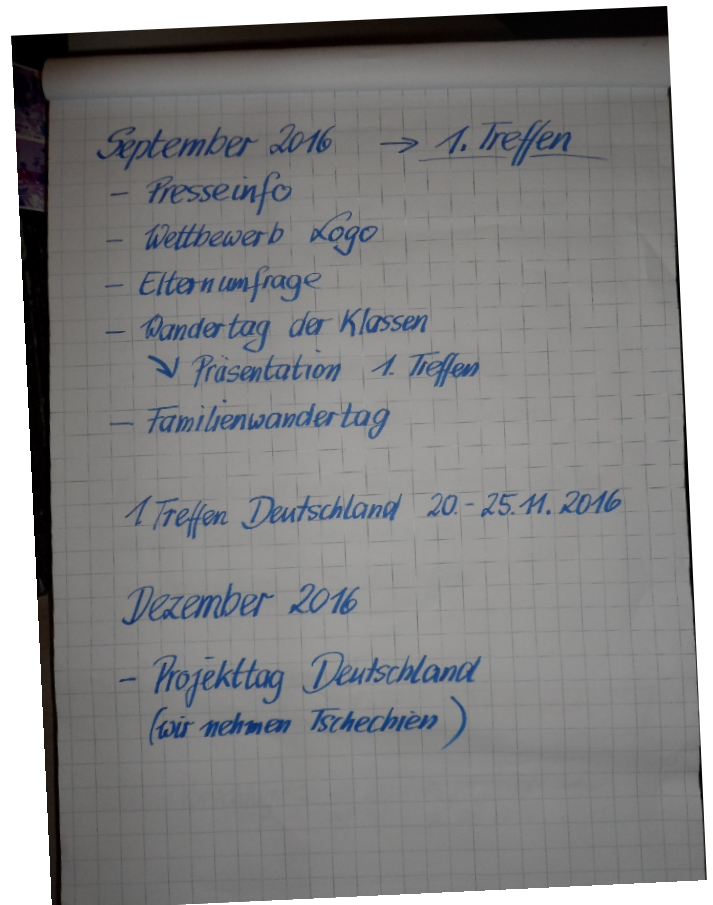 September 2016 → 1. Treffen
– Presseinfo
– Wettbewerb Logo
– Elternumfrage
– Wandertag der Klassen
↘ Präsentation 1. Treffen
– Familienwandertag
1 Treffen Deutschland 20.- 25.11. 2016
Dezember 2016
– Projekttag Deutschland
(wir nehmen Tschechien)